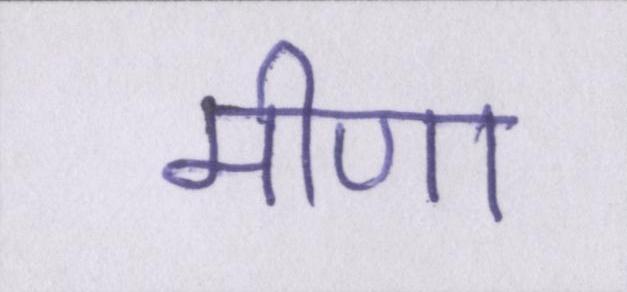 मीणा